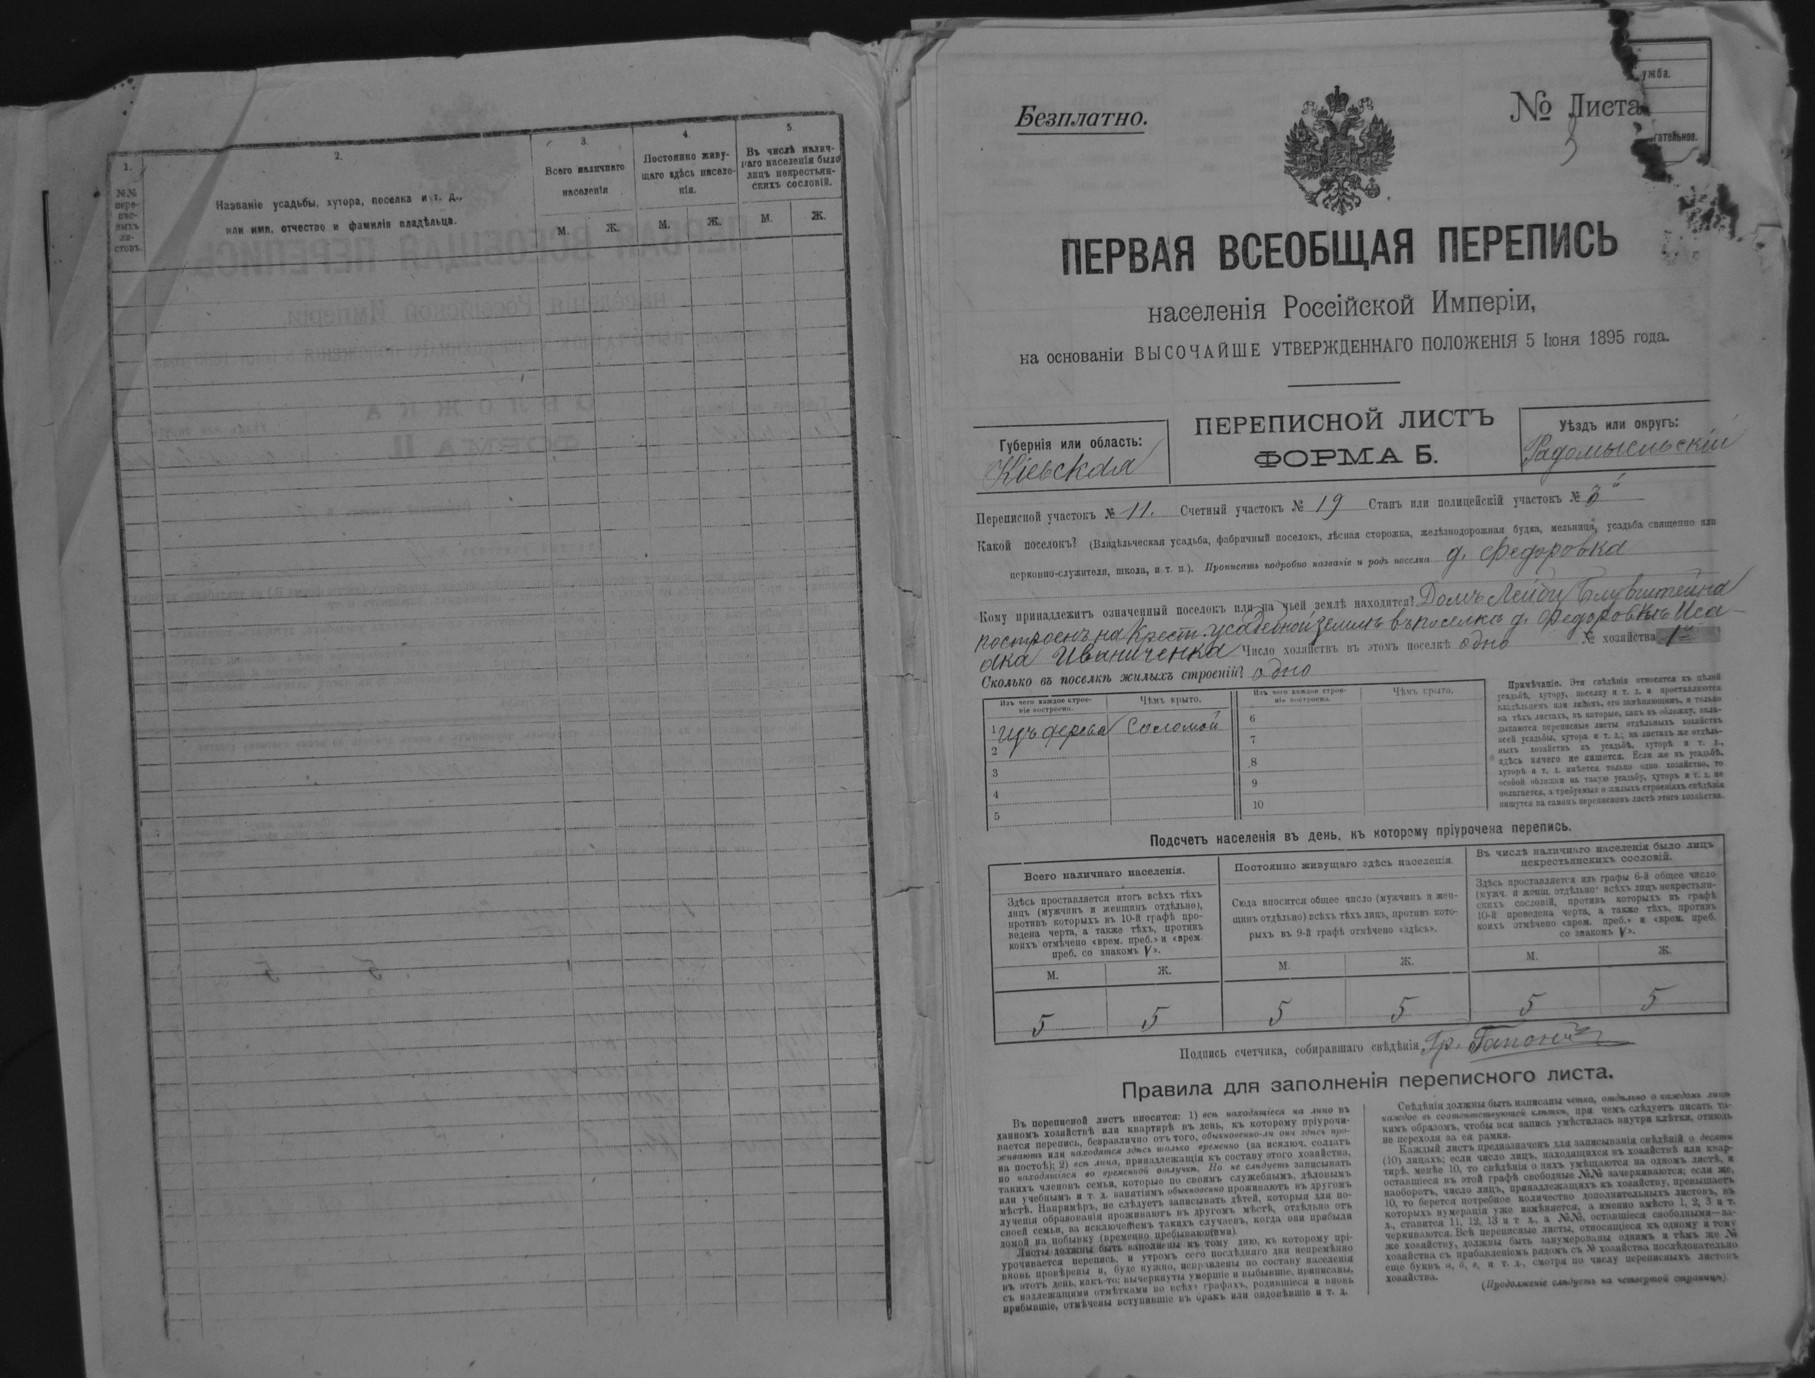 1.
2.
3.
4.
5.
№№ пере-
пис-
ныхъ
ли-
стовъ.
Названіе усадьбы, хутора, поселка и т. д.,
или имя, отчество и фамилія владѣльца.
Всего наличнаго
населенія
Постоянно живу-
щаго здѣсь населе-
нія.
Въ числѣ налич-
наго населенія было
лицъ некрестьян-
скихъ сословій.
М. Ж. М. Ж. М. Ж.
ужба.
гательное.
Безплатно.
№ Листа
3
ПЕРВАЯ ВСЕОБЩАЯ ПЕРЕПИСЬ
населенія Россійской Имперіи,
на основаніи ВЫСОЧАЙШЕ УТВЕРЖДЕННАГО ПОЛОЖЕНІЯ 5 Іюня 1895 года.
Губернія или область:
Кіевская
ПЕРЕПИСНОЙ ЛИСТЪ
ФОРМА Б.
Уѣздъ или округъ:
Радомысльскій
Переписной участокъ № 11. Счетный участокъ № 19 Станъ или полицейскій участокъ № 3
Какой поселокъ? (Владѣльческая усадьба, фабричный поселокъ, лѣсная сторожка, желѣзнодорожная будка, мельница, усадьба священно или
церковно-служителя, школа, и т. п.). Прописать подробно названіе и родъ поселка д. Федоровка
Кому принадлежитъ означенный поселокъ или на чьей землѣ находится? Домъ Лейби Блувштейна
построенъ на Крест. усадебной землѣ въ поселкѣ д. Федоровкѣ Иса-
ака Иваниченка Число хозяйствъ въ этомъ поселкѣ одно № хозяйства 1
Сколько въ поселкѣ жилыхъ строеній? одно
Изъ чего каждое строе-
ніе построено.
Чѣмъ крыто.
Изъ чего каждое строе-
ніе построено.
Чѣмъ крыто.
1 изъ дерева Соломой 6
2 7
3 8
4 9
5 10
Примѣчаніе. Эти свѣдѣнія относятся къ цѣлой
усадьбѣ, хутору, поселку и т. д. и проставляются
владѣльцемъ или лицомъ, его замѣняющимъ, и только
на тѣхъ листахъ, въ которые, какъ въ обложку, вкла-
дываются переписные листы отдѣльныхъ хозяйствъ
всей усадьбы, хутора и т. д.; на листахъ же отдѣль-
ныхъ хозяйствъ въ усадьбѣ, хуторѣ и т. д.,
здѣсь ничего не пишется. Если же въ усадьбѣ,
хуторѣ и т. д. имѣется только одно хозяйство, то
особой обложки на такую усадьбу, хуторъ и т. д. не
полагается, а требуемыя о жилыхъ строеніяхъ свѣдѣнія
пишутся на самомъ переписномъ листѣ этого хозяйства.
Подсчетъ населенія въ день, къ которому пріурочена перепись.
Всего наличнаго населенія.
Здѣсь проставляется итогъ всѣхъ тѣхъ
лицъ (мужчинъ и женщинъ отдѣльно),
противъ которыхъ въ 10-й графѣ про-
ведена черта, а также тѣхъ, противъ
коихъ отмѣчено «врем. преб.» и «врем.
преб. со знакомъ V».
Постоянно живущаго здѣсь населенія.
Сюда вносится общее число (мужчинъ и жен-
щинъ отдѣльно) всѣхъ тѣхъ лицъ, противъ кото-
рыхъ въ 9-й графѣ отмѣчено «здѣсь».
Въ числѣ наличнаго населенія было лицъ
некрестьянскихъ сословій.
Здѣсь проставляется изъ графы 6-й общее число
(мужч. и женщ. отдѣльно) всѣхъ лицъ некрестьян-
скихъ сословій, противъ которыхъ въ графѣ
10-й проведена черта, а также тѣхъ, противъ
коихъ отмѣчено «врем. преб.» и «врем. преб.
со знакомъ V».
М. Ж. М. Ж. М. Ж.
5 5 5 5 5 5
Подпись счетчика, собиравшаго свѣдѣнія Гр.
Правила для заполненія переписного листа.
Въ переписной листъ вносятся: 1) всѣ находящіеся на лицо въ
данномъ хозяйствѣ или квартирѣ въ день, къ которому пріурочи-
вается перепись, безразлично отъ того, обыкновенно-ли они здѣсь про-
живаютъ или находятся здѣсь только временно (за исключ. солдатъ
на постоѣ); 2) всѣ лица, принадлежащія къ составу этого хозяйства,
но находящіяся во временной отлучкѣ. Но не слѣдуетъ записывать
такихъ членовъ семьи, которые по своимъ служебнымъ, дѣловымъ
или учебнымъ и т. д. занятіямъ обыкновенно проживаютъ въ другомъ
мѣстѣ. Напримѣръ, не слѣдуетъ записывать дѣтей, которыя для по-
лученія образованія проживаютъ въ другомъ мѣстѣ, отдѣльно отъ
своей семьи, за исключеніемъ такихъ случаевъ, когда они прибыли
домой на побывку (временно пребывающими).
Листы должны быть заполнены къ тому дню, къ которому прі-
урочивается перепись, и утромъ сего послѣдняго дня непремѣнно
вновь провѣрены и, буде нужно, исправлены по составу населенія
въ этотъ день, какъ-то: вычеркнуты умершіе и выбывшіе, приписаны,
съ надлежащими отмѣтками во всѣхъ графахъ, родившіеся и вновь
прибывшіе, отмѣчены вступившіе въ бракъ или овдовѣвшіе и т. д.
Свѣдѣнія должны быть написаны четко, отдѣльно о каждомъ лицѣ
каждое въ соотвѣтствующей клѣткѣ, при чемъ слѣдуетъ писать та-
кимъ образомъ, чтобы вся запись умѣстилась внутри клѣтки, отнюдь
не переходя за ея рамки.
Каждый листъ предназначенъ для записыванія свѣдѣній о десяти
(10) лицахъ; если число лицъ, находящихся въ хозяйствѣ или квар-
тирѣ, менѣе 10, то свѣдѣнія о нихъ умѣщаются на одномъ листѣ, и
оставшіеся въ этой графѣ свободные №№ зачеркиваются; если же,
наоборотъ, число лицъ, принадлежащихъ къ хозяйству, превышаетъ
10, то берется потребное количество дополнительныхъ листовъ, въ
которыхъ нумерація уже измѣняется, а именно вмѣсто 1, 2, 3 и т.
д., ставится 11, 12, 13 и т. д., а №№, оставшіеся свободными—за-
черкиваются. Всѣ переписные листы, относящіеся къ одному и тому
же хозяйству, должны быть занумерованы однимъ и тѣмъ же №
хозяйства съ прибавленіемъ рядомъ съ № хозяйства послѣдовательно
еще буквъ а, б, в, и т. д., смотря по числу переписныхъ листовъ
хозяйства.
(Продолженіе слѣдуетъ на четвертой страницѣ)